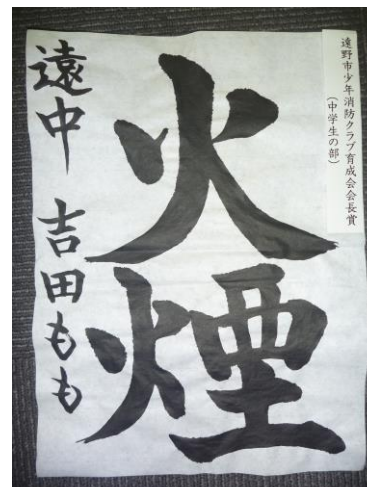 遠野市少年消防クラブ育成会会長賞
（中学生の部）
火煙
遠中 吉田もも